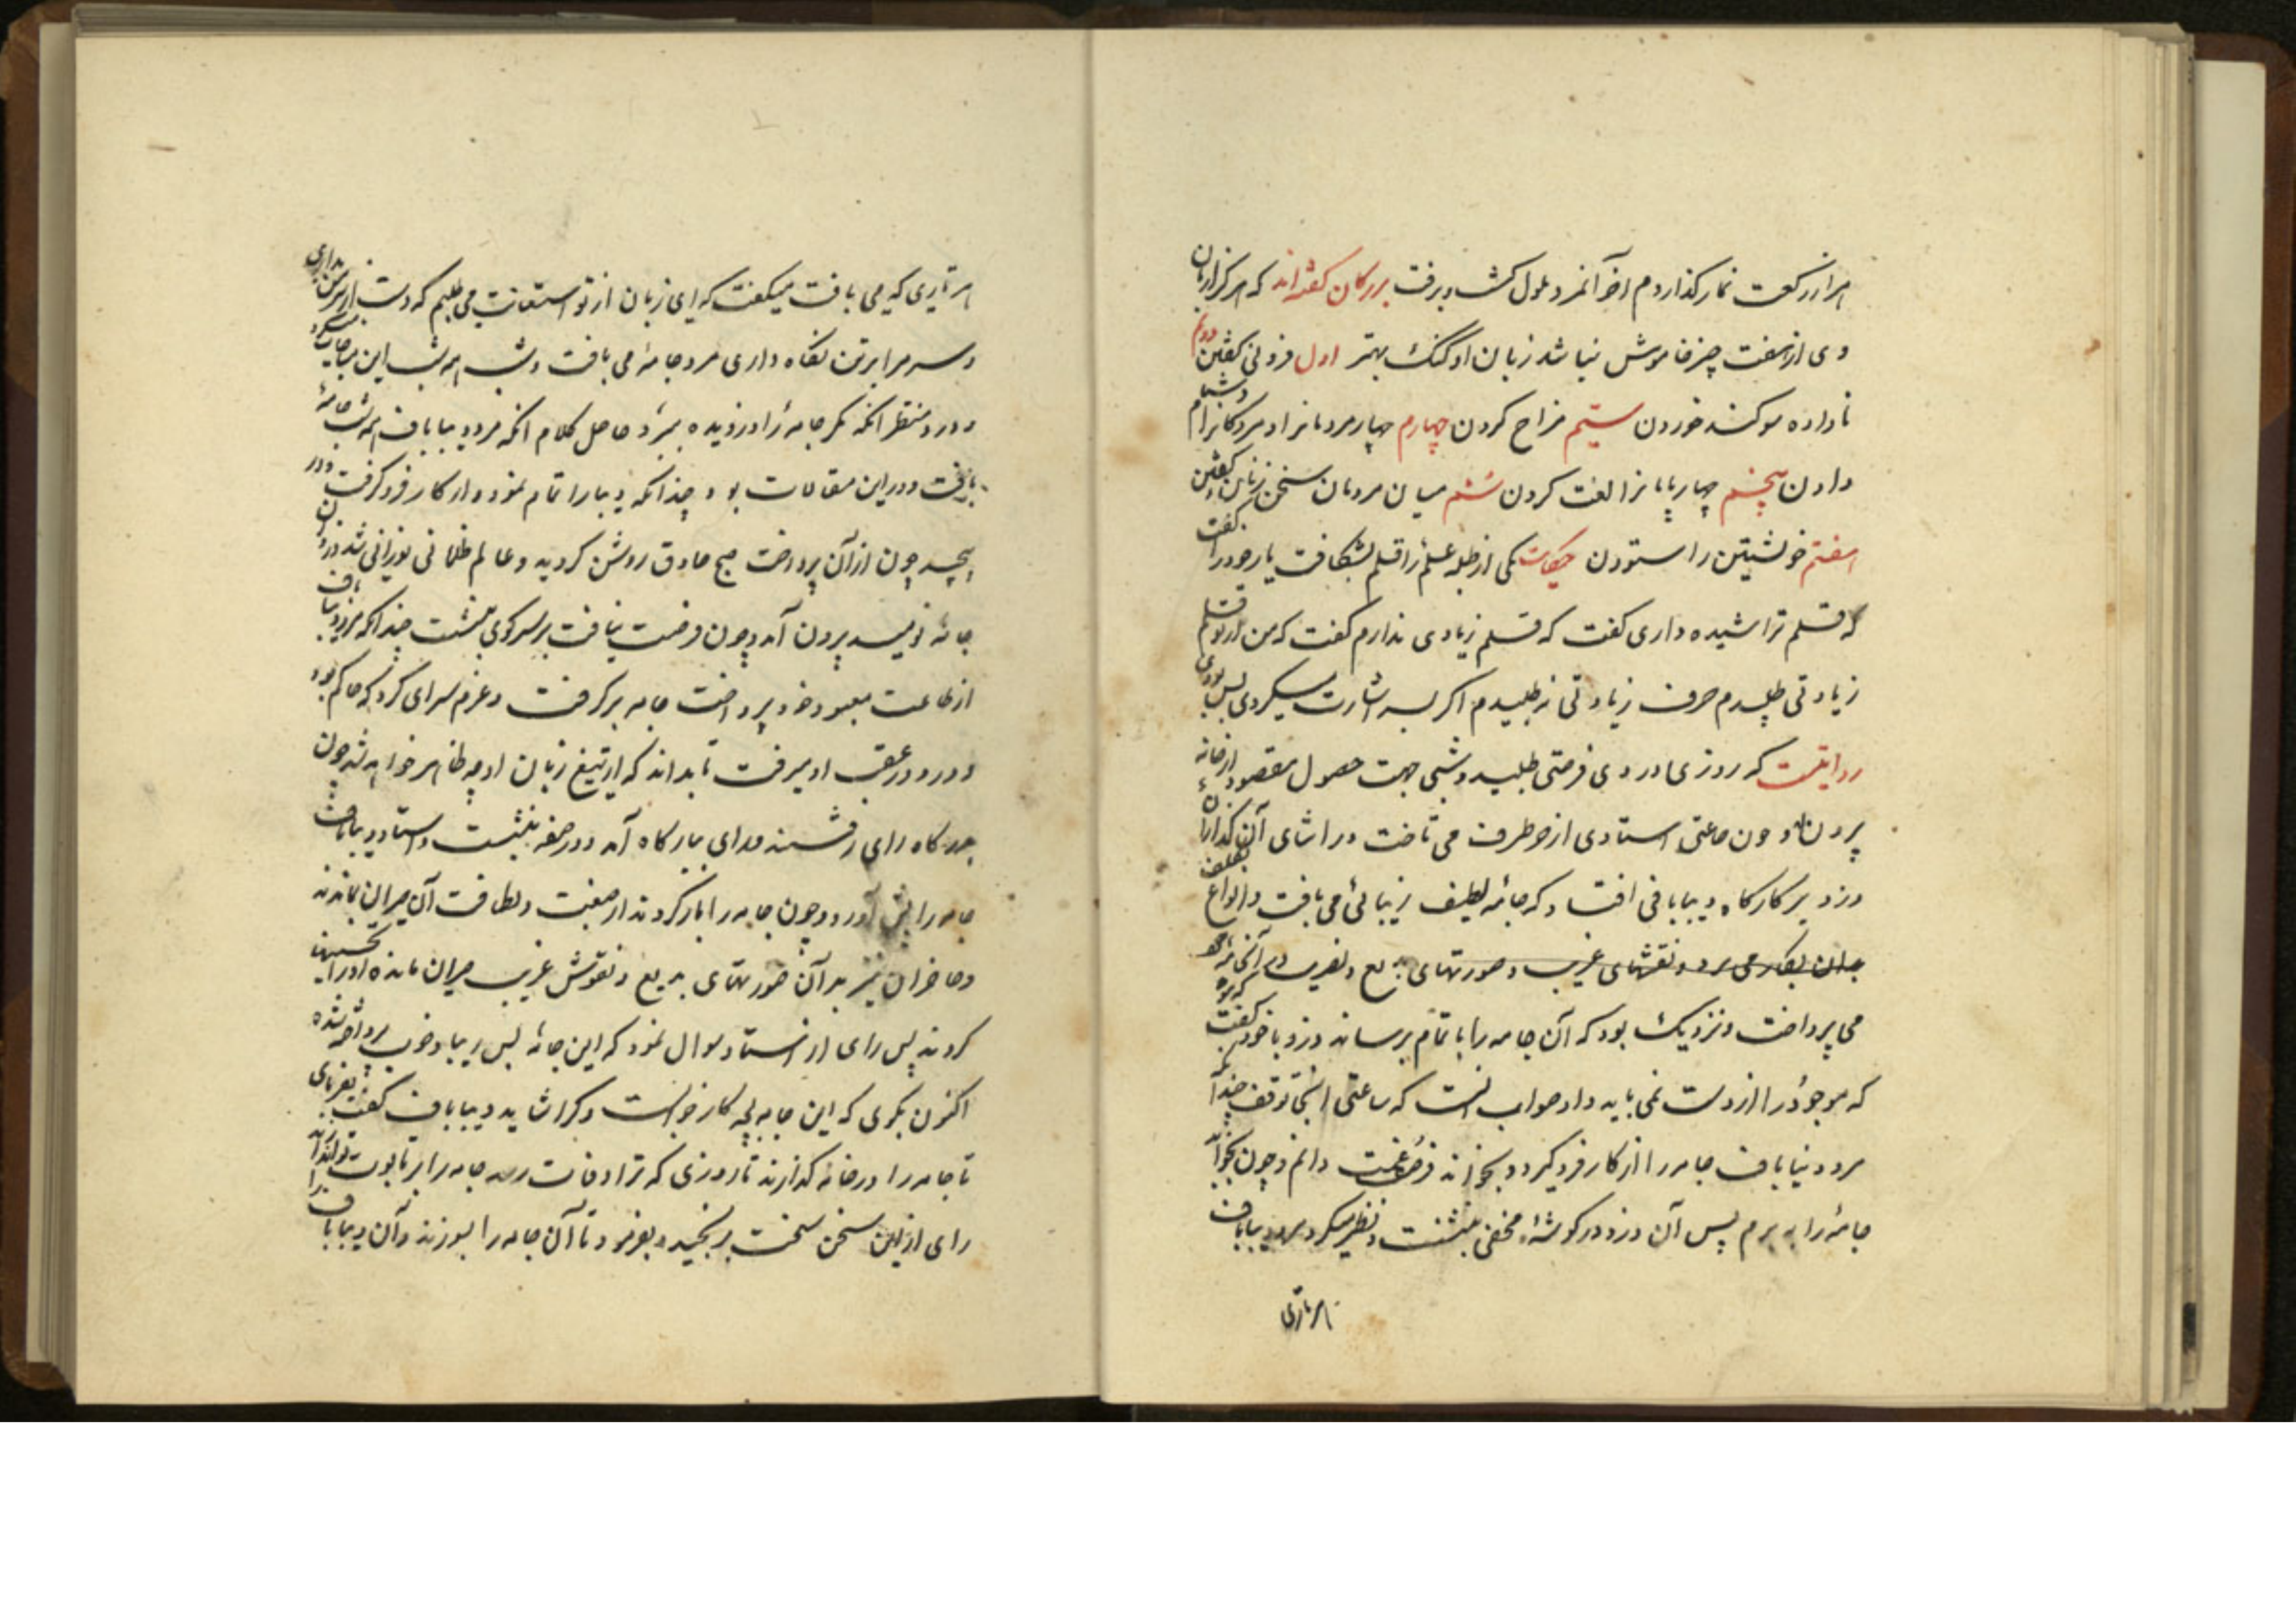 هزار رکعت نماز کذاردم آخر آنمرد ملول کشت و برفت بزرکان کفته‌اند که هر کرا زبان
وی از هفت چیز خاموش نباشد زبان او کنک بهتر اول فزونی کفتن دوم
ناداده سوکند خوردن سیّم مزاح کردن چهارم مردمانرا و مردکانرا دشنام
دادن پنجم چهارپایانرا لعنت کردن ششم میان مردمان سخن زنان کفتن
هفتم خویشتن را ستودن حکایت یکی از طلبه علم را قلم بشکافت یار خود را کفت
که قلم تراشیده داری کفت که قلم زیادی ندارم کفت که من از تو قلم
زیادتی طلبیدم حرف زیادتی نطلبیدم اکر بسر اشارت میکردی بس بودی
روایتست که روزی دزدی فرصتی طلبید و شبی جهت حصول مقصود از خانه
بیرون و چون ساعتی استادی از هر طرف می تاخت در اثنای آن کذار آن
دزد بر کارکاه دیبابافی افتاد که جامهٔ لطیف زیبائی می بافت و انواع تکلف
بدان بکار می برد و نقشهای غریب و صورتهای بدیع
می پرداخت و نزدیک بود که آن جامه را باتمام برساند دزد با خود کفت
که موجود را از دست نمی باید داد صواب آنست که ساعتی اینجا توقف
مرد دیباباف جامه را از کار فرو کیرد و فرصت غنیمت دانم و چون بخوابد
جامهٔ را به برم پس آن دزد در کوشهٔ مخفی بنشست و نظر میکرد مرد دیباباف
هر تاری
هر تاری که می بافت میکفت که ای زبان از تو استعانت می طلبم که دست از سر من بداری
و سر مرا بر تن نکاه داری مرد جامه می بافت و شب همه شب این مناجات میکرد
و دزد منتظر آنکه مکر جامه را دزدیده ببرد حاصل کلام آنکه مرد دیباباف همه شب جامهٔ
بافت و در این مقالات بود چندانکه دیبا را تمام نمود و از کار فرو کرفت و در
پیچید چون از آن پرداخت صبح صادق روشن کردید و عالم ظلمانی نورانی شد دزد از آن
خانه نومید بیرون آمد و چون فرصت نیافت بر سر کوی بنشست چندانکه مرد دیباباف
از طاعت معبود خود پرداخت جامه بر کرفت و عزم سرای کرد که حاکم بود
و دزد در عقب او میرفت تا بداند که از تیغ زبان او چه ظاهر خواهد شد چون
بدرکاه رای رفتند و رای ببارکاه آمد و در صفه بنشست و استاد دیباباف
جامه را پیش آورد و چون جامه را باز کردند از صنعت و لطافت آن حیران بماندند
و حاضران نیز بر آن صورتهای بدیع و نقوش غریب حیران مانده او را تحسینها
کردند پس رای از استاد سوال نمود که این جامهٔ بس زیبا و خوب پرداخته شده
اکنون بکوی که این جامه بچه کار خواست و کرا شاید دیباباف کفت بفرمای
تا جامه را در خانه کذارند تا روزی که ترا وفات رسد جامه را بر تابوت تو اندازند
رای از این سخن سخت برنجید و بفرمود تا آن جامه را بسوزند و آن دیباباف را